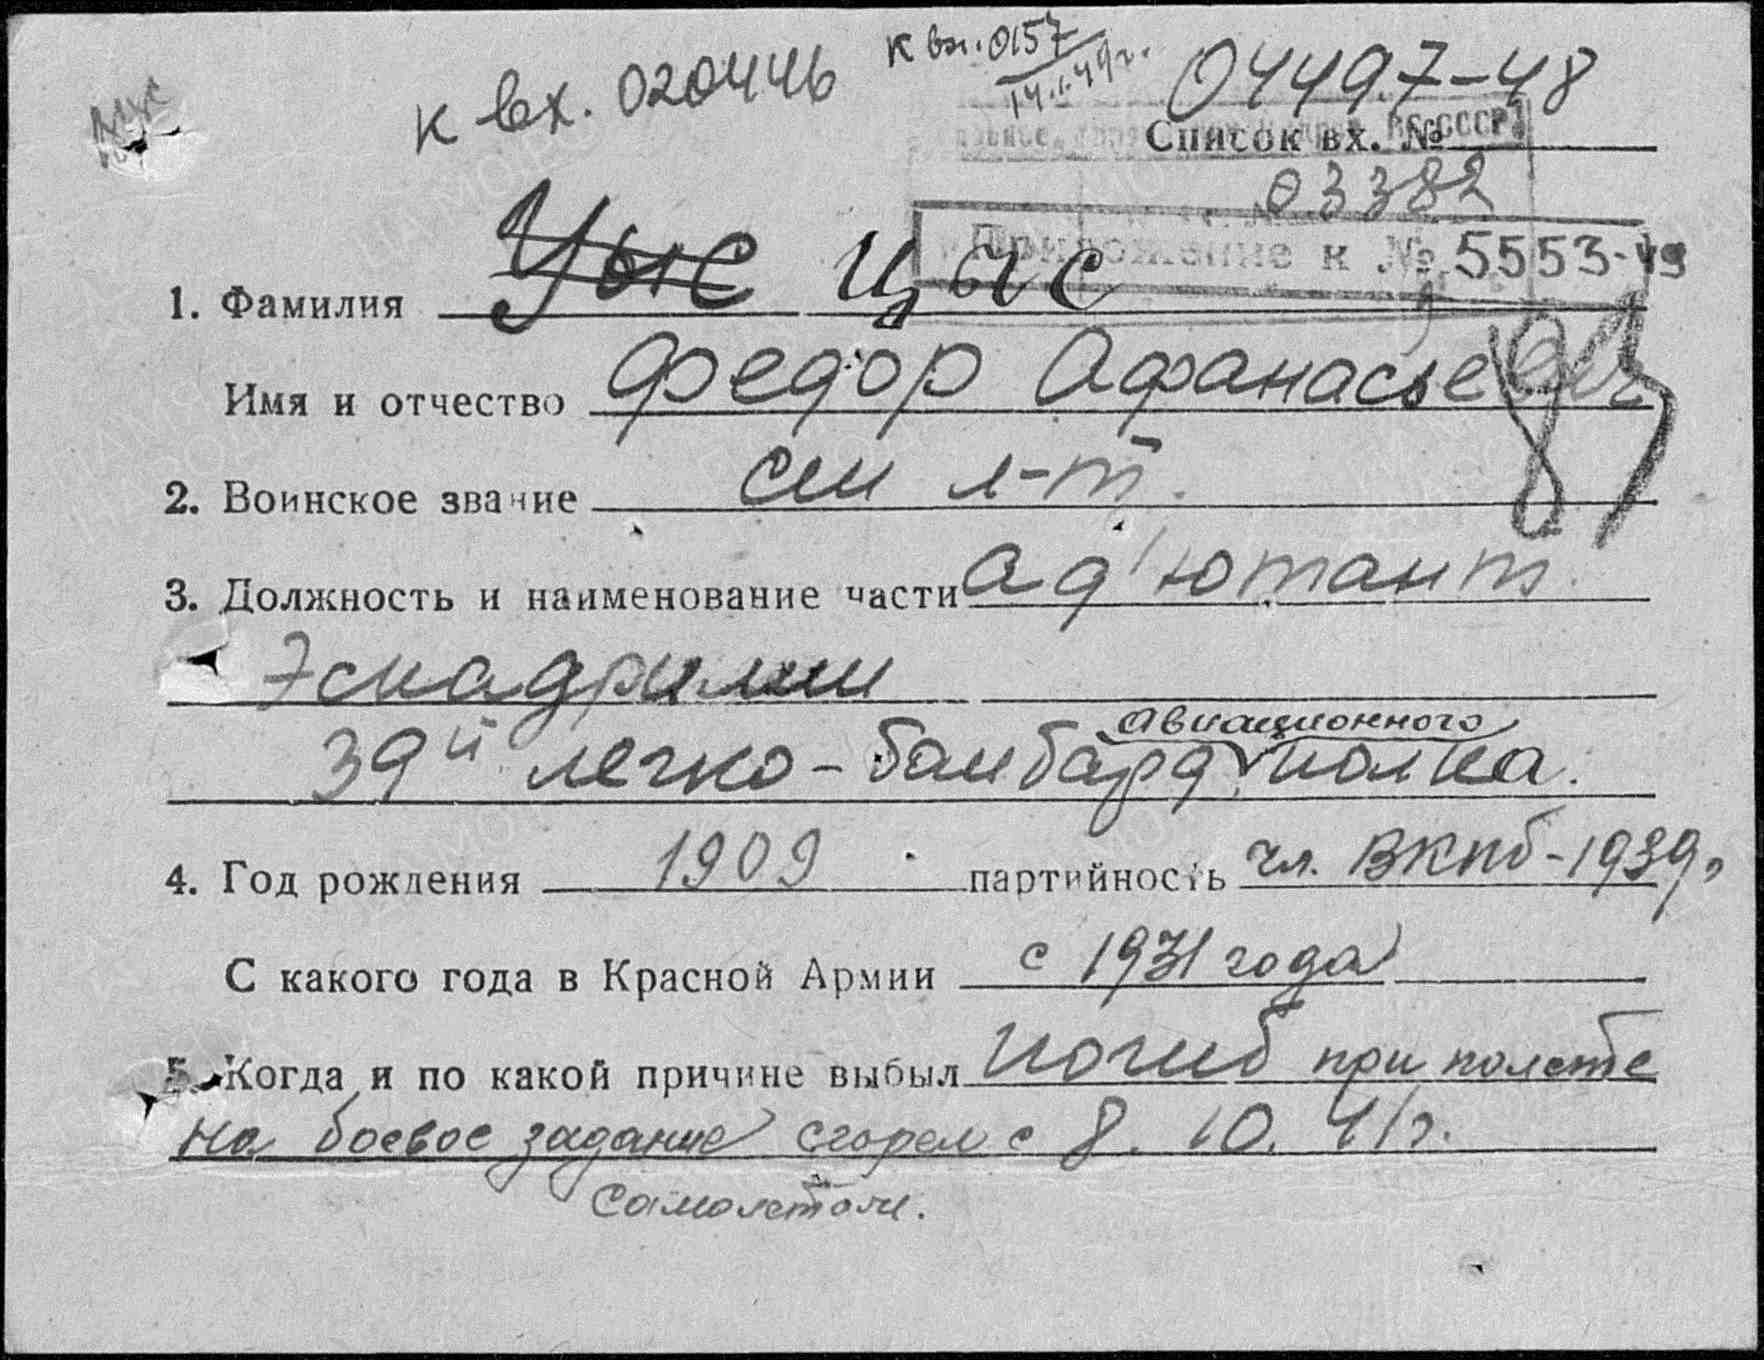 к вх. 020446
к вх. 0157
14.1.49г.
04497-48
Список вх. №
03382
Приложение к № 5553-49
1. Фамилия Уыс Цыс
Имя и отчество Федор Афанасьевич
2. Воинское звание мл л-т.
3. Должность и наименование части ад'ютант
Эскадрилии
Авиационного
39й легко-бомбард. полка.
4. Год рождения 1909 партийность чл. ВКПб-1939г
С какого года в Красной Армии с 1931 года
5. Когда и по какой причине выбыл Погиб при полете
на боевое задание сгорел с 8.10.41г.
самолетом.